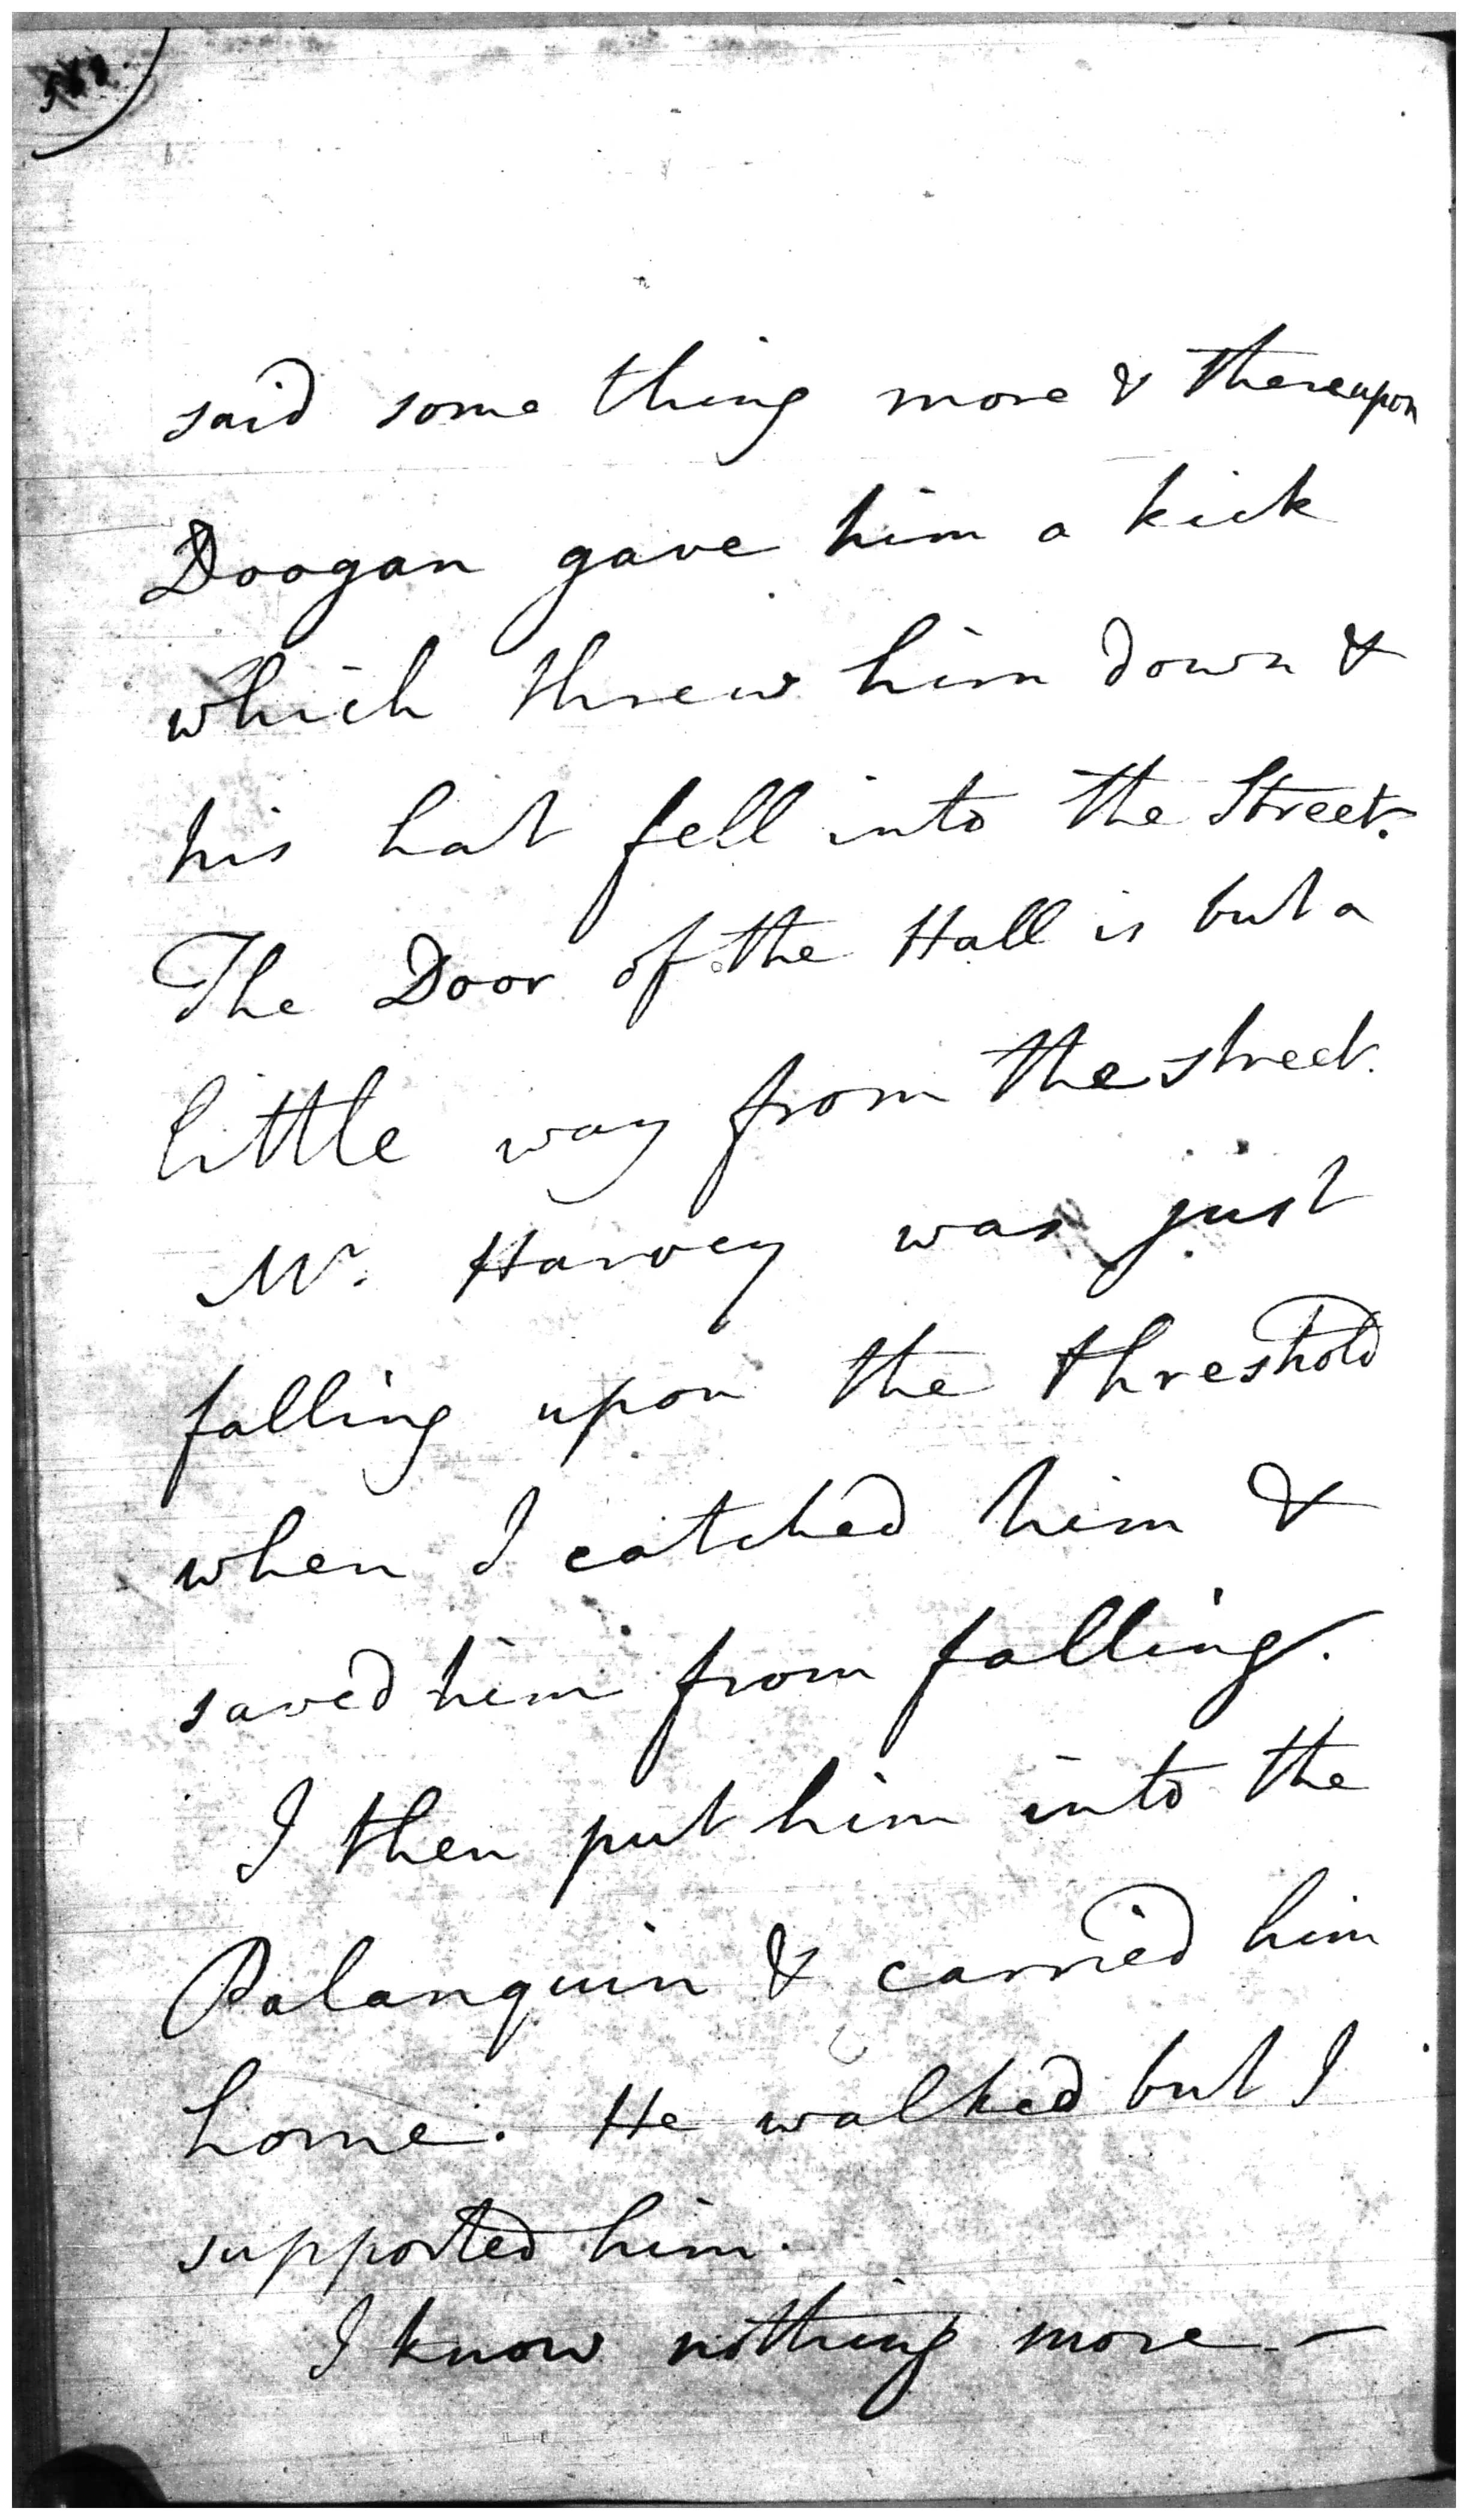 said some thing more & thereupon
Doogan gave him a kick
which threw him down &
his hat fell into the Street.
The Door of the Hall is but a
little way from the street.
Mr. Harvey was just
falling upon the threshold
when I catched him &
saved him from falling.
I then put him into the
Palanquin & carried him
home. He walked but I
supported him.
I know nothing more —